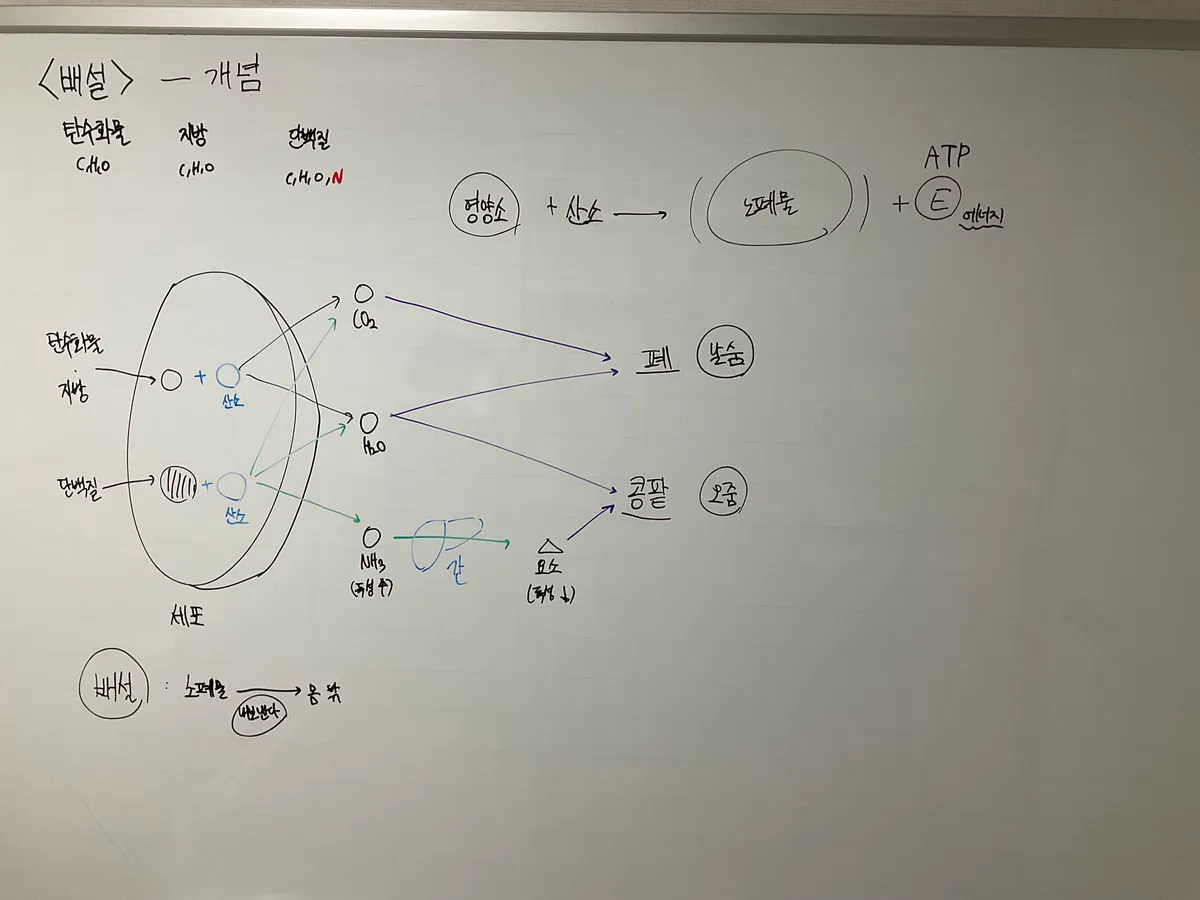 <배설> - 개념
탄수화물 지방 단백질
C,H,O C,H,O C,H,O,N
ATP
영양소 + 산소 → ( 노폐물 ) + E 에너지
탄수화물
·
지방
+
산소
단백질
+
산소
세포
CO₂
H₂O
NH₃
(독성 ↑)
간
요소
(독성 ↓)
폐 날숨
콩팥 오줌
배설 : 노폐물 → 몸 밖
내보낸다